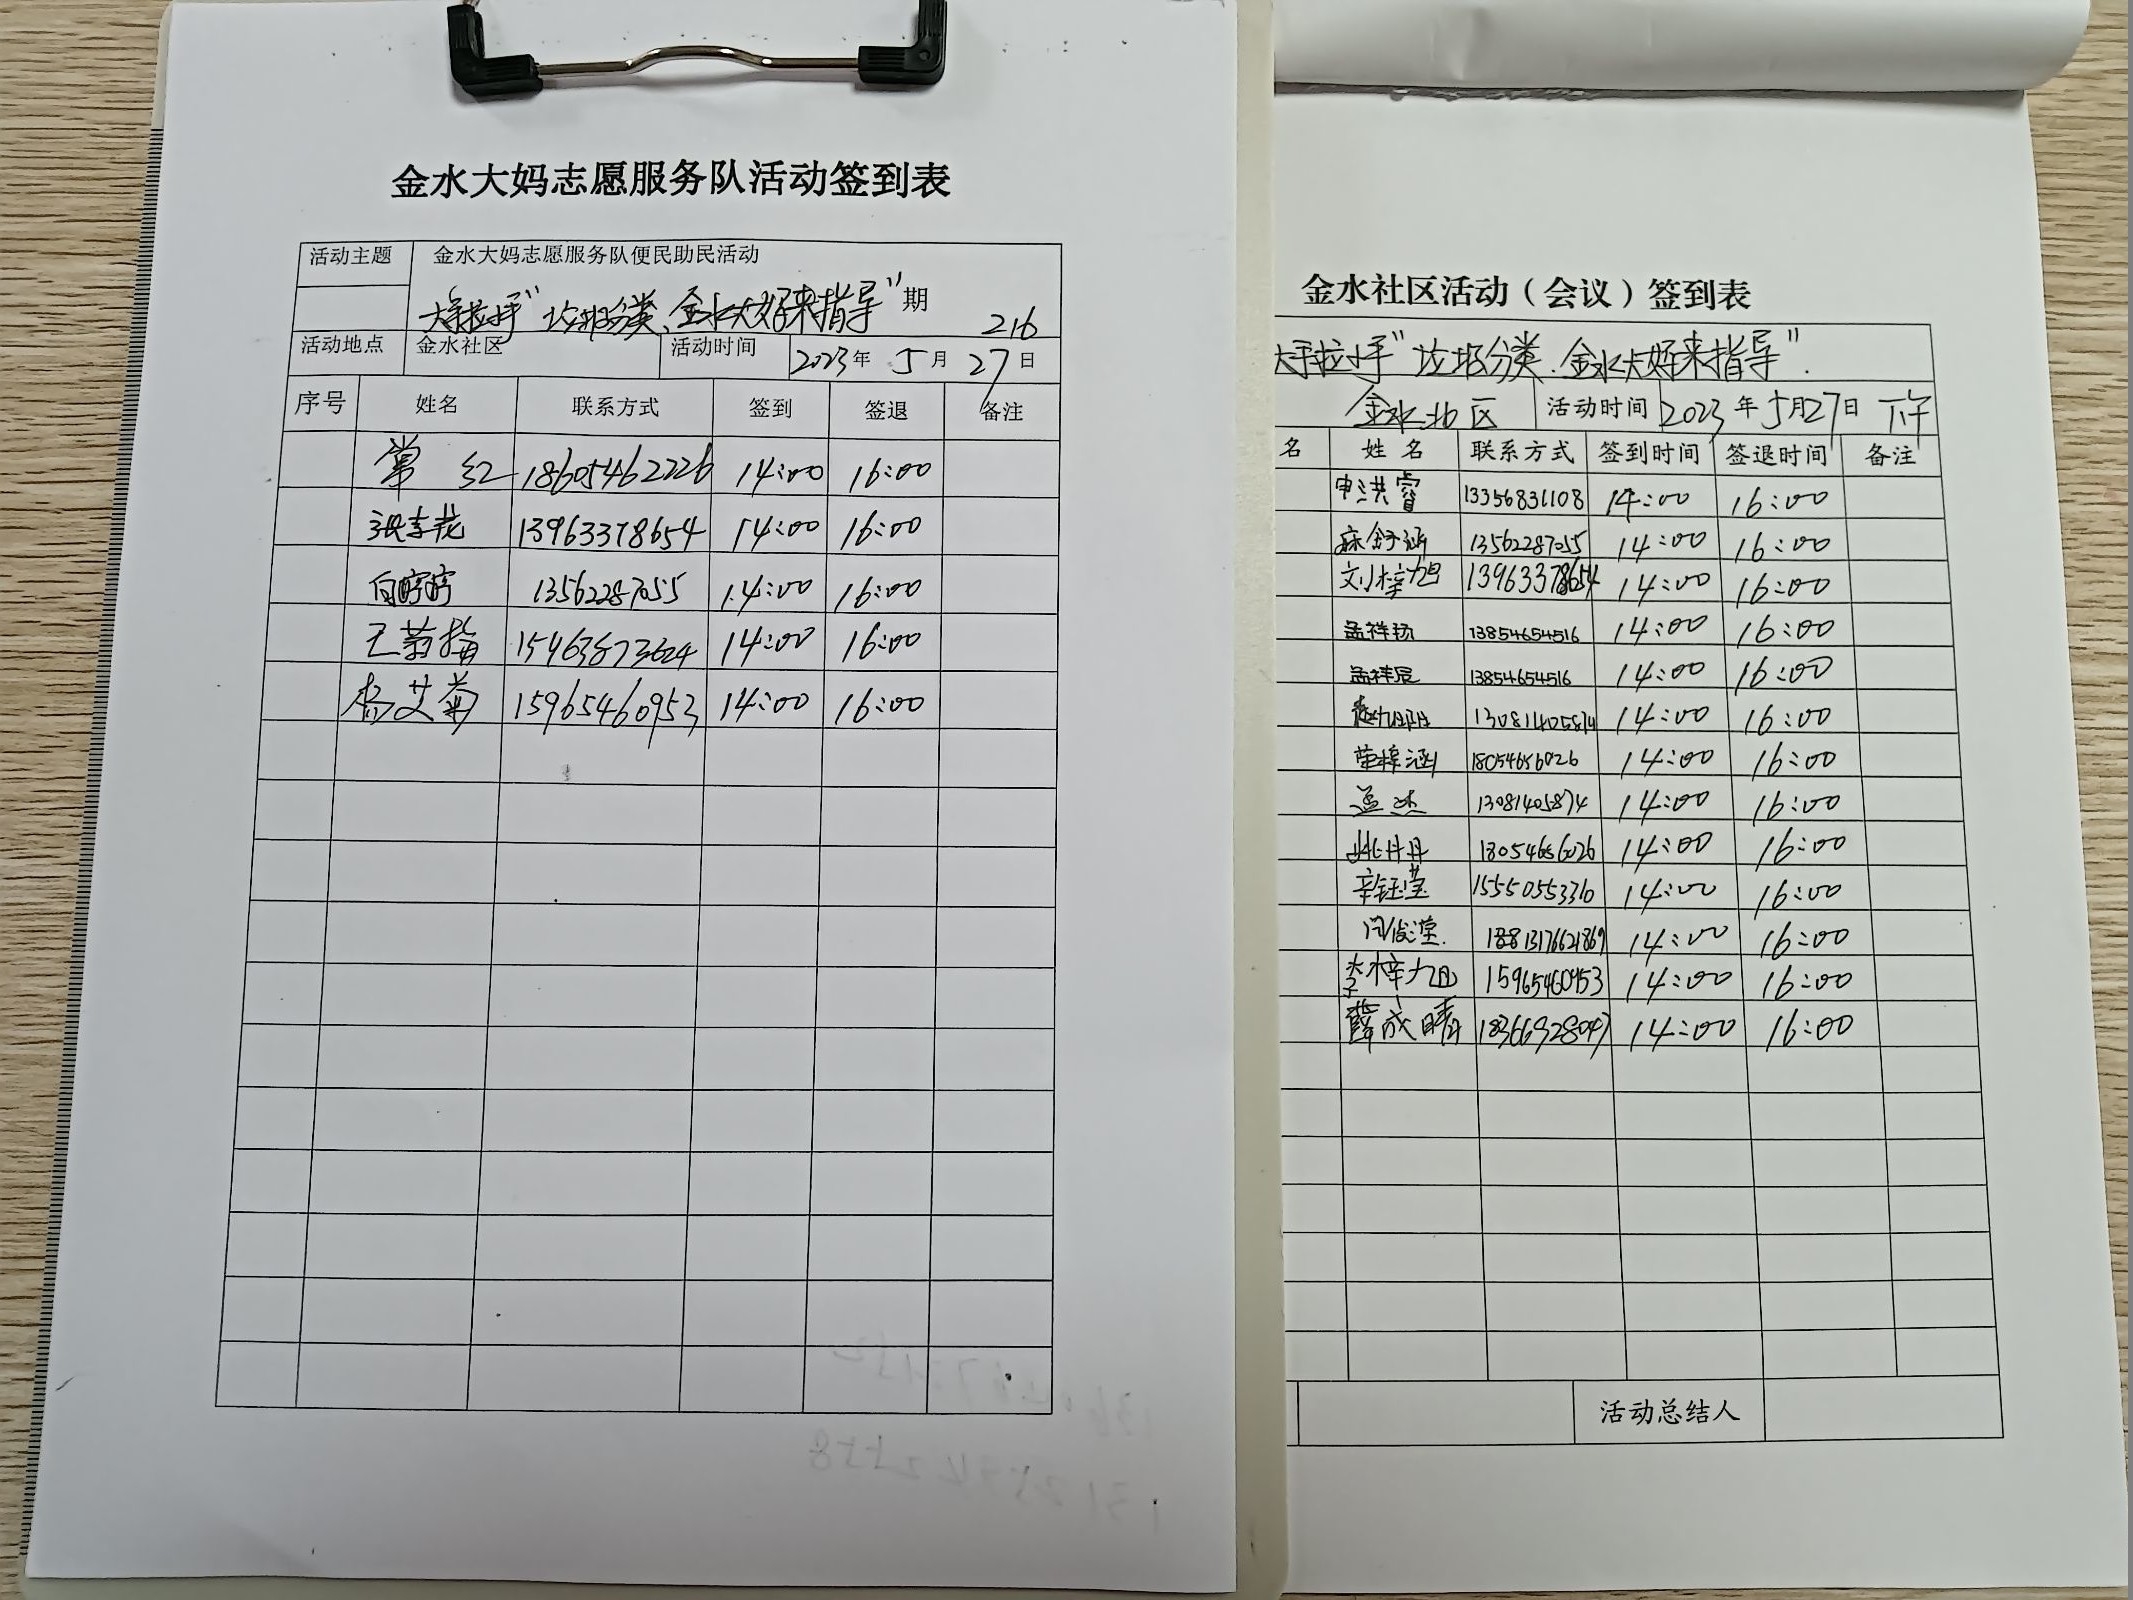 金水大妈志愿服务队活动签到表
活动主题 金水大妈志愿服务队便民助民活动
大手拉小手"垃圾分类、金水大妈来指导"期 216
活动地点 金水社区 活动时间 2023年5月27日
序号 姓名 联系方式 签到 签退 备注
常红 18605462226 14:00 16:00
张李龙 13963378654 14:00 16:00
白婷婷 13562287055 14:00 16:00
王菊梅 15963873624 14:00 16:00
杨艾菊 15965460953 14:00 16:00
金水社区活动（会议）签到表
大手拉小手"垃圾分类、金水大妈来指导".
金水社区 活动时间 2023年5月27日 下午
名 姓名 联系方式 签到时间 签退时间 备注
申洪睿 13356831108 14:00 16:00
麻舒涵 13562287055 14:00 16:00
刘梓旭 13963378654 14:00 16:00
孟祥扬 13854654516 14:00 16:00
孟祥宸 13854654516 14:00 16:00
13081405874 14:00 16:00
荣梓涵 18054656026 14:00 16:00
孟杰 13081405874 14:00 16:00
丹丹 18054656026 14:00 16:00
辛钰莹 15550553310 14:00 16:00
闫俊滢 14:00 16:00
李梓旭 15965460953 14:00 16:00
薛成晴 18366928047 14:00 16:00
活动总结人